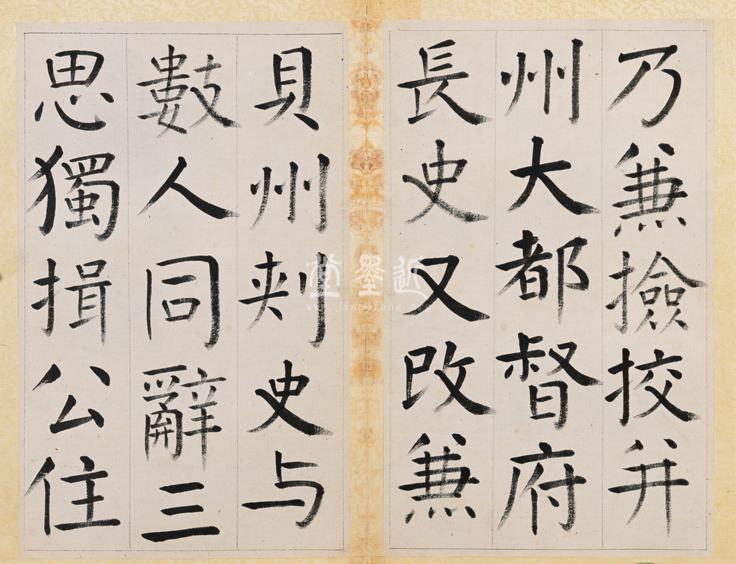 乃兼撿挍并
州大都督府
長史又改兼
貝州刾史与
數人同辭三
思獨揖公住
近墨堂